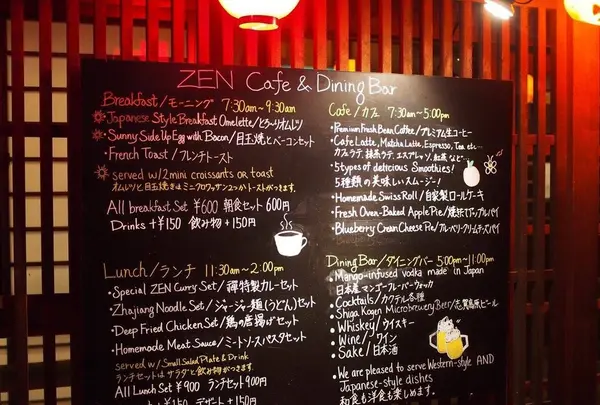 ZEN Cafe & Dining Bar
Breakfast/モーニング 7:30am~9:30am
Japanese Style Breakfast Omelette/とろ~りオムレツ
・Sunny Side Up Egg with Bacon/目玉焼とベーコンセット
・French Toast/フレンチトースト
served w/2mini croissants or toast
オムレツと目玉焼きはミニクロワッサン2つかトーストがつきます。
All breakfast Set ¥600 朝食セット600円
Drinks+¥150 飲み物+150円
Lunch/ランチ 11:30am~2:00pm
・Special ZEN Curry Set/禅特製カレーセット
・Zhajiang Noodle Set/ジャージャー麺(うどん)セット
・Deep Fried Chicken Set/鶏の唐揚げセット
・Homemade Meat Sauce/ミートソースパスタセット
served w/Small Salad Plate & Drink
ランチセットはサラダと飲み物がつきます。
All Lunch Set ¥900 ランチセット900円
+¥150/デザート+150円
Cafe/カフェ 7:30am~5:00pm
・Premium Fresh Bean Coffee/プレミアム生コーヒー
・Cafe Latte, Matcha Latte, Espresso, Tea etc...
カフェラテ, 抹茶ラテ, エスプレッソ, 紅茶など…
・5types of delicious Smoothies!
5種類の美味しいスムージー!
・Homemade Swiss Roll/自家製ロールケーキ
・Fresh Oven-Baked Apple Pie/焼立てアップルパイ
・Blueberry Cream Cheese Pie/ブルーベリークリームチーズパイ
Dining Bar/ダイニングバー 5:00pm~11:00pm
・Mango-infused vodka made in Japan
日本産マンゴーフレーバーウォッカ
・Cocktails/カクテル各種
・Shiga Kogen Microbrewery Beer/志賀高原ビール
・Whiskey/ウイスキー
・Wine/ワイン
・Sake/日本酒
・We are pleased to serve Western-style AND
Japanese-style dishes
和食も洋食も楽しめます。